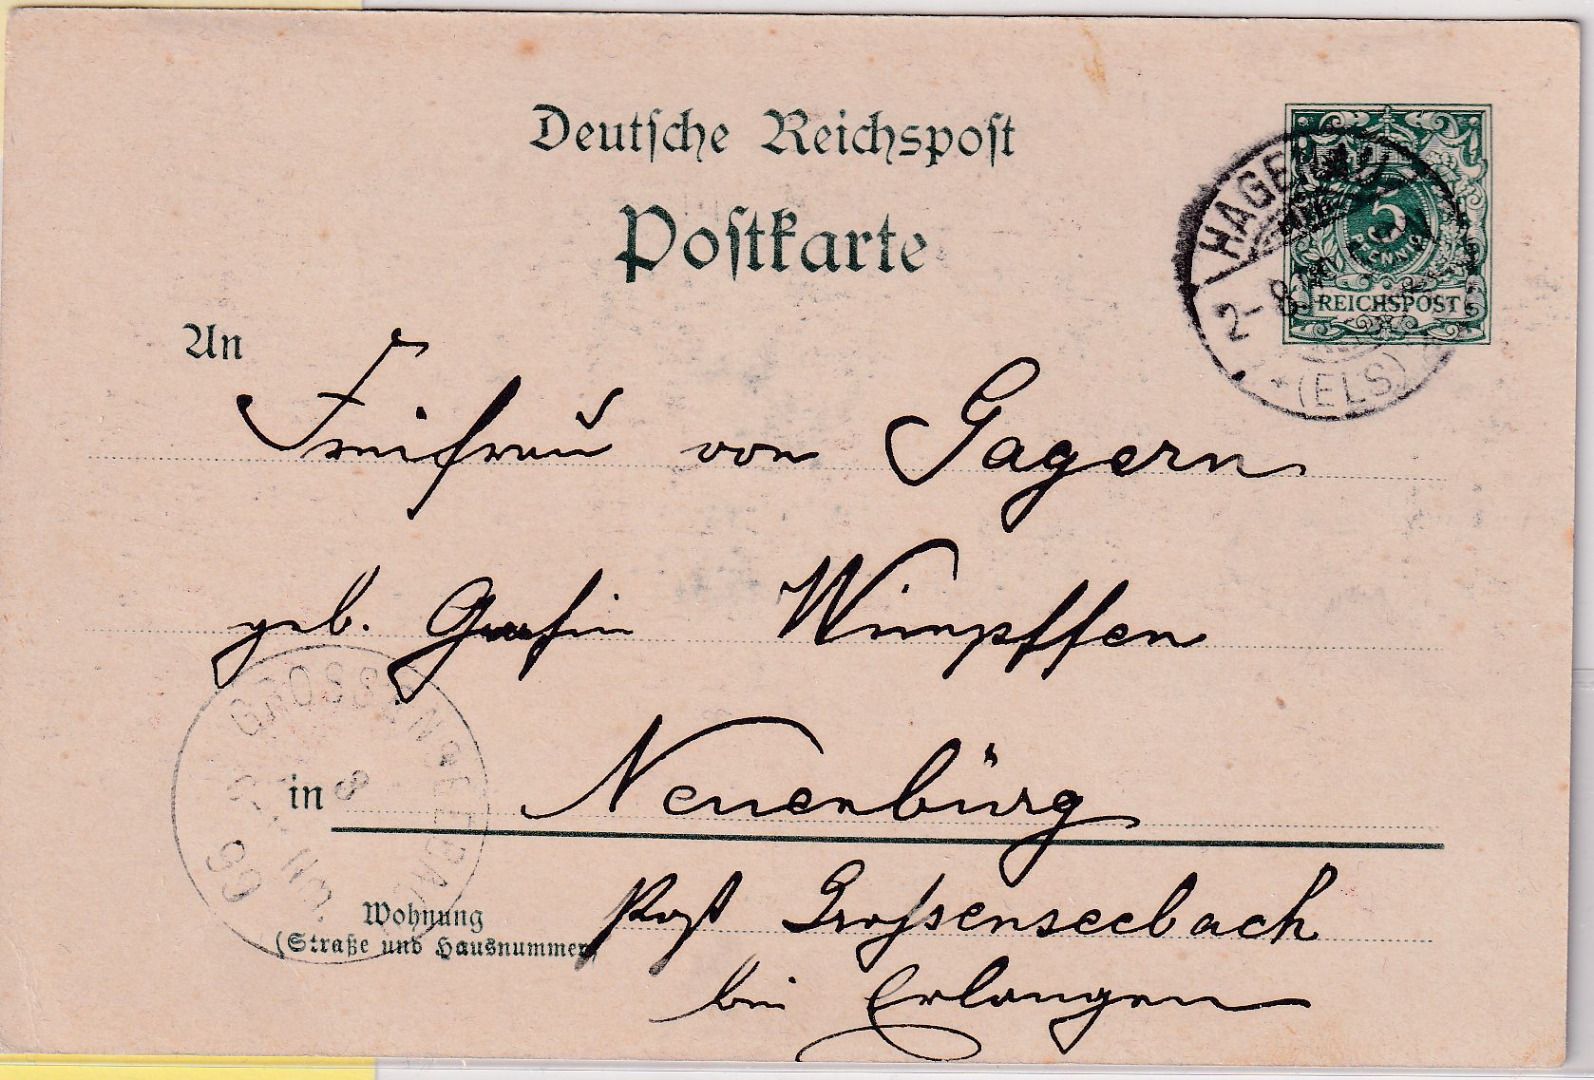 Deutsche Reichspost
Postkarte
5
PFENNIG
REICHSPOST
HAGENAU
2-
8
* (ELS)
An
Freifrau von Gagern
geb. Gräfin Wimpffen
in Neuenbürg
GROSSENSEEBACH
8
NM.
99
Wohnung
(Straße und Hausnummer)
Post Grossenseebach
bei Erlangen